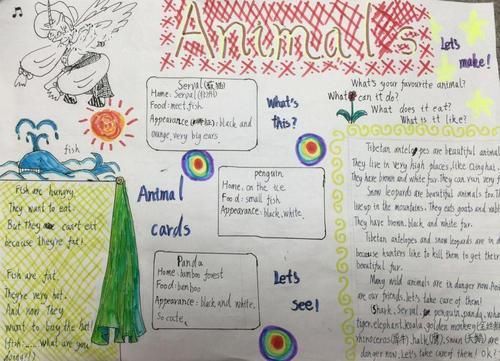 Animals
Let's
make!
What's your favourite animal?
What can it do?
What does it eat?
What is it like?
Serval(薮猫)
Home: Serval
Food: meet, fish
Appearance : black and
orange, very big ears
What's
this?
fish
Fish are hungry.
They want to eat.
But They can't eat
because They're fat!
Fish are fat.
They're very hot.
And now They
want to buy the hat!
(fish..... What are you
doing?)
Animal
cards
penguin
Home: on the ice
Food: small fish
Appearance: black, white
Panda
Home: bamboo forest
Food: bamboo
Appearance: black and white.
So cute.
Let's
See!
Tibetan antelopes are beautiful animals
They live in very high places, like Qinghai.
They have brown and white fur. They can run very
Snow leopards are beautiful animals too. Th
live up in the mountains. They eat goats and
They have brown, black and white fur.
Tibetan antelopes and snow leopards are in d
because hunters like to kill them to get their
beautiful fur.
Many wild animals are in danger now. And
are our friends, let's take care of them!
(Shark, Serval, penguin, panda, wha
tiger, elephant, koala, golden monkey
rhinoceros(犀牛), swan(天鹅) a
danger now. Let's take care of them! Ok?